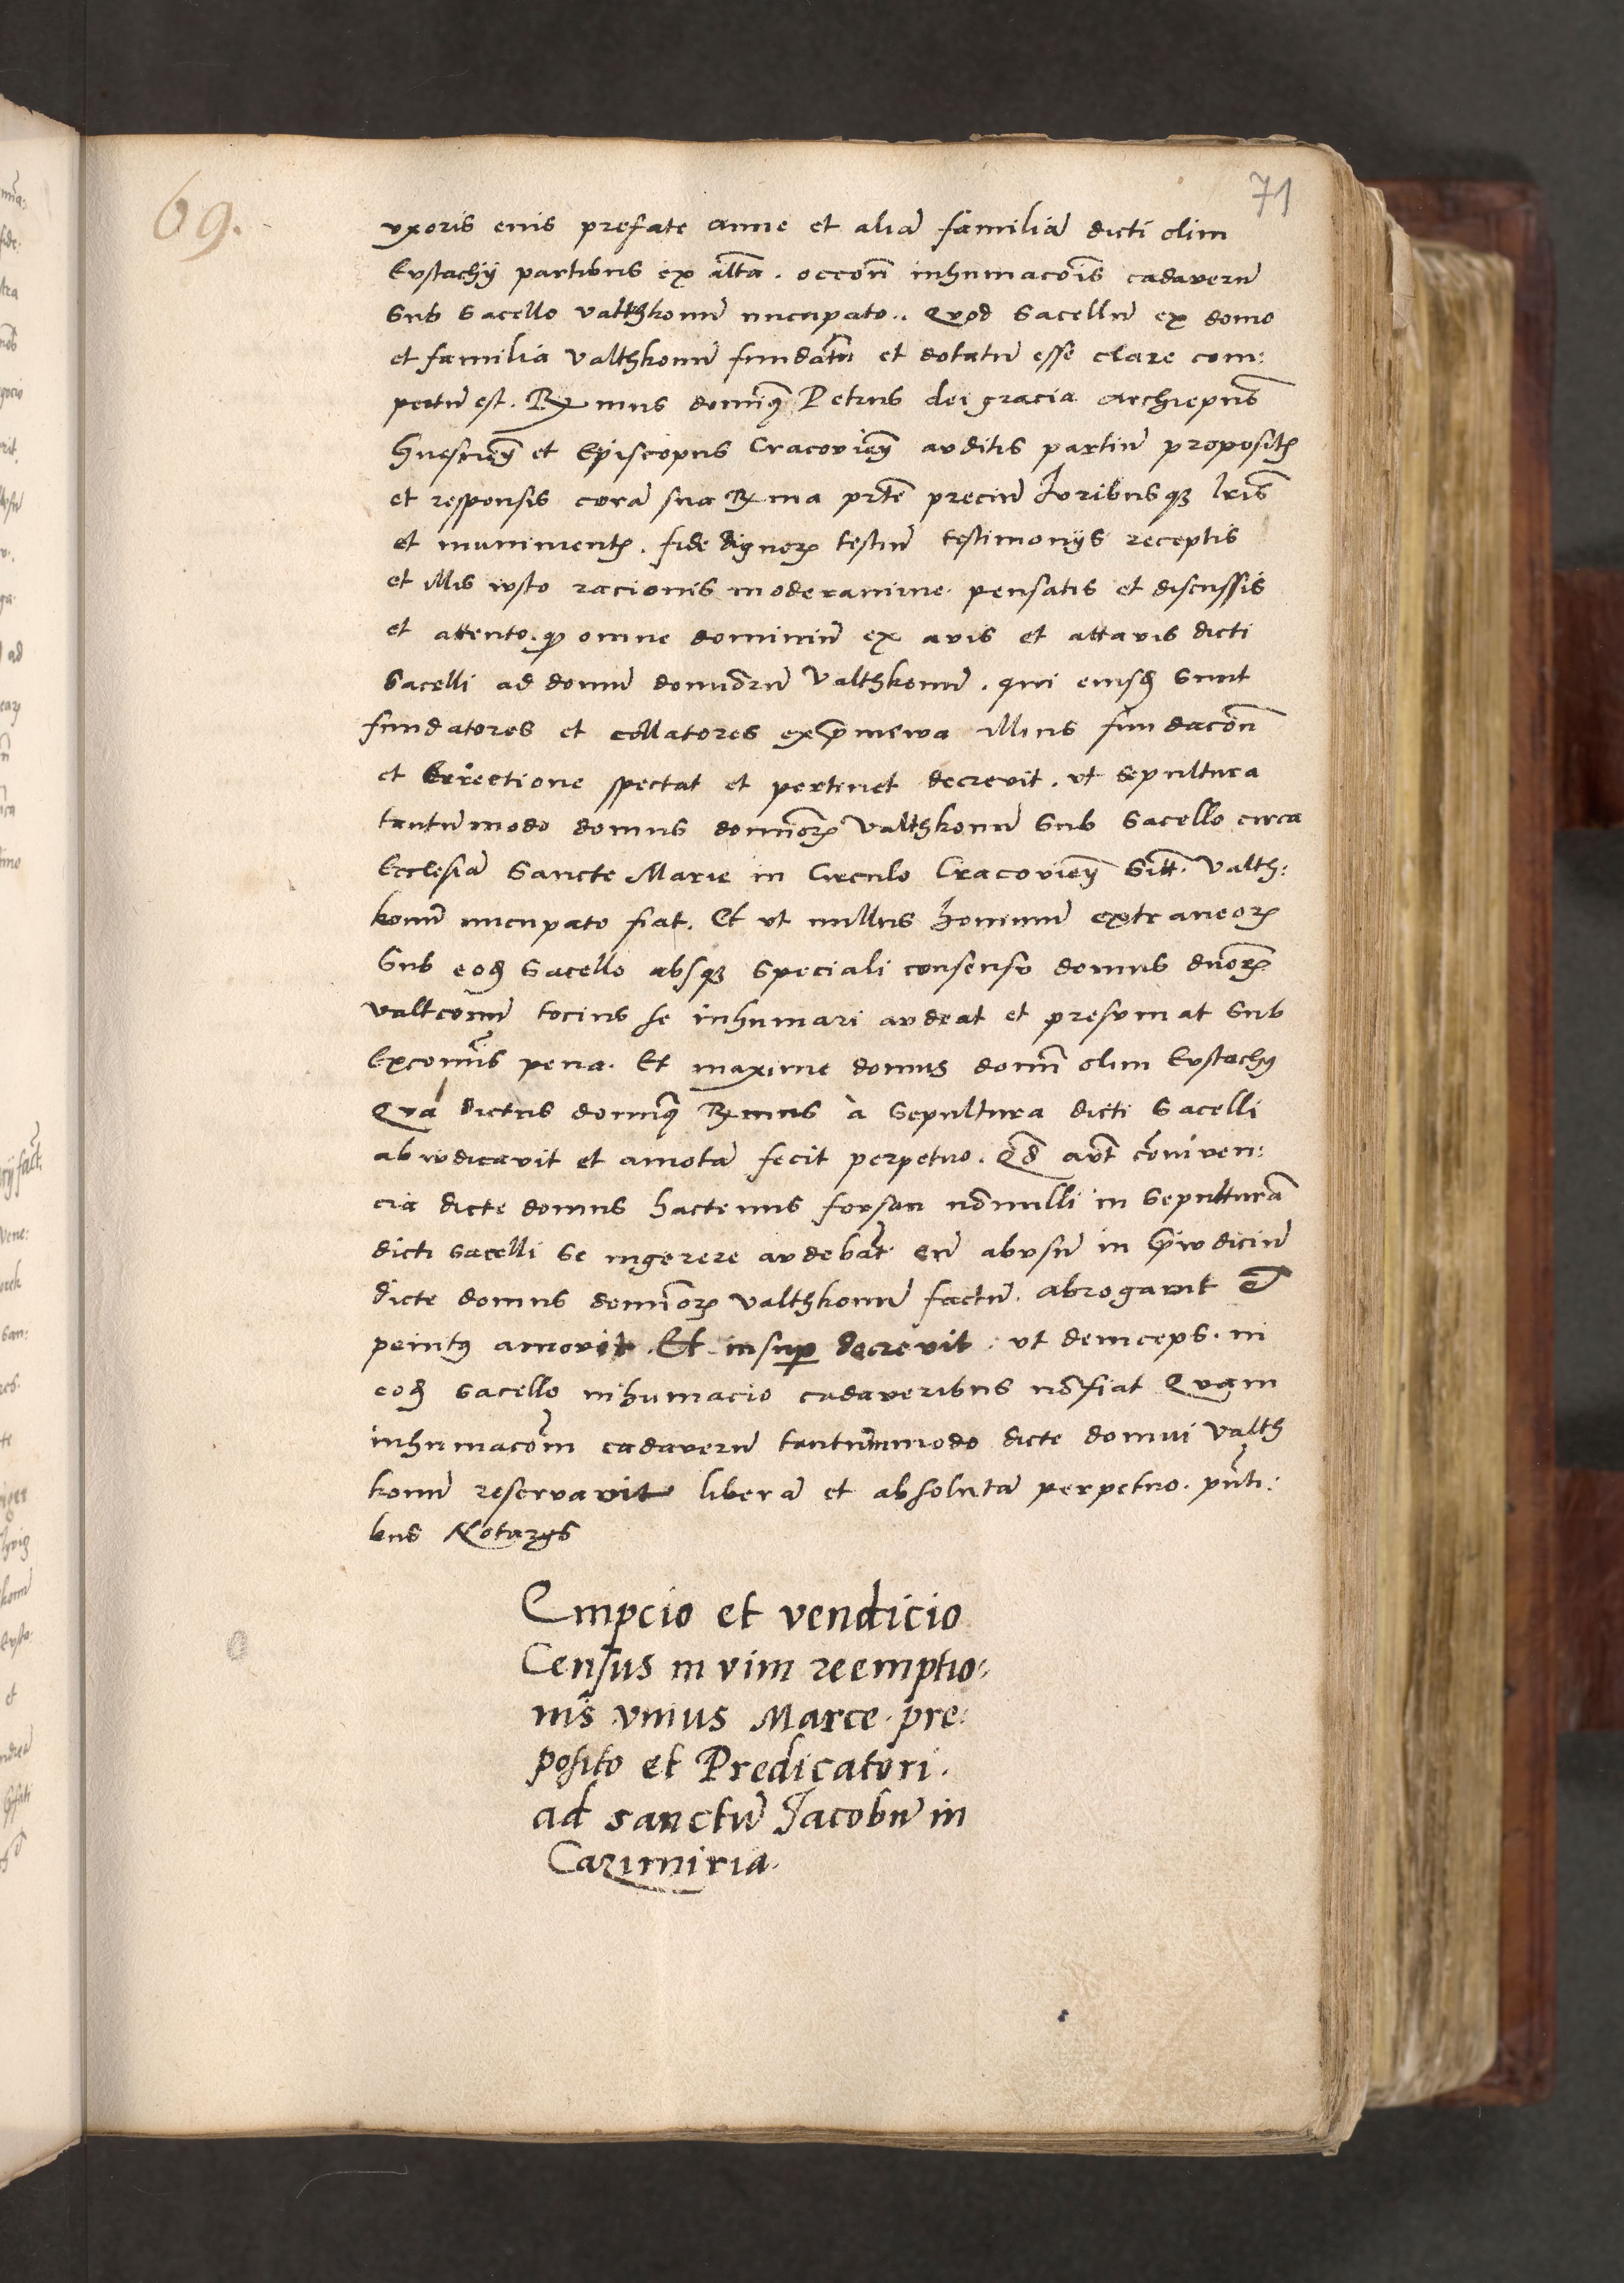 69.
71
vxoris eius prefate Anne et aliã familiã dicti olim
Evstachÿ partibus ex altã. occõn inhumacõis cadaverũ
sub Sacello valthkonũ nucupato.. Qvod Sacellũ ex domo
et familia valthkonũ fundatũ et dotatũ esse clare com:
pertũ est. Rx mus domiq Petrus dei gracia Archiepũs
Gneznẽn et Episcopus Cracoviẽn avditis partiũ propositis
et responsis corã sua Rx ma prte preciũ Ivribusqz lris
et munimentis. fide dignorꝝ testiũ testimonÿs receptis
et illis ivsto racionis moderamine pensatis et discussis
et attento. qz omne dominiũ ex avis et attavis dicti
Sacelli ad domũ domorũ Valthkonũ. qui eiusđ sunt
fundatores et collatores ex primeva illius fundacõn
et Errectione spectat et pertinet decrevit. vt Sepultura
tantũmodo domus domiorꝝ valthkonũ Sub Sacello circa
Ecclesiã Sancte Marie in Circulo Cracoviẽn sitt. Valth:
konũ nucupato fiat. Et vt nullus hominũ extraneorꝝ
Sub eođ Sacello absqz speciali consensv domus dnorꝝ
valtconũ tocius se inhumari avdeat et presvmat sub
Excomis pena. Et maxime domus domi olim Evstachÿ
Qvã dictus domiq Rx mus à Sepultura dicti Sacelli
abivdicavit et amotã fecit perpetuo. Qđ avt coniven:
cia dicte domus hactenus forsan nõnulli in Sepulturã
dicti Sacelli se ingerere avdebãt eũ abvsũ in preivdiciũ
dicte domus domiorꝝ valthkonũ factũ. abrogavit et
penitꝰ amovit. Et insuꝑ decrevit. vt deinceps. in
eođ Sacello inhumacio cadaveribus nõ fiat Qvam
inhumacõem cadaverũ tantũmmodo dicte domui valth
konũ reservavit liberã et absolutã perpetuo. pñti:
bus Notarÿs
Empcio et vendicio
Census in vim reemptio:
nis vnius Marce pre:
posito et Predicatori.
ad sanctũ Jacobũ in
Cazimiria.